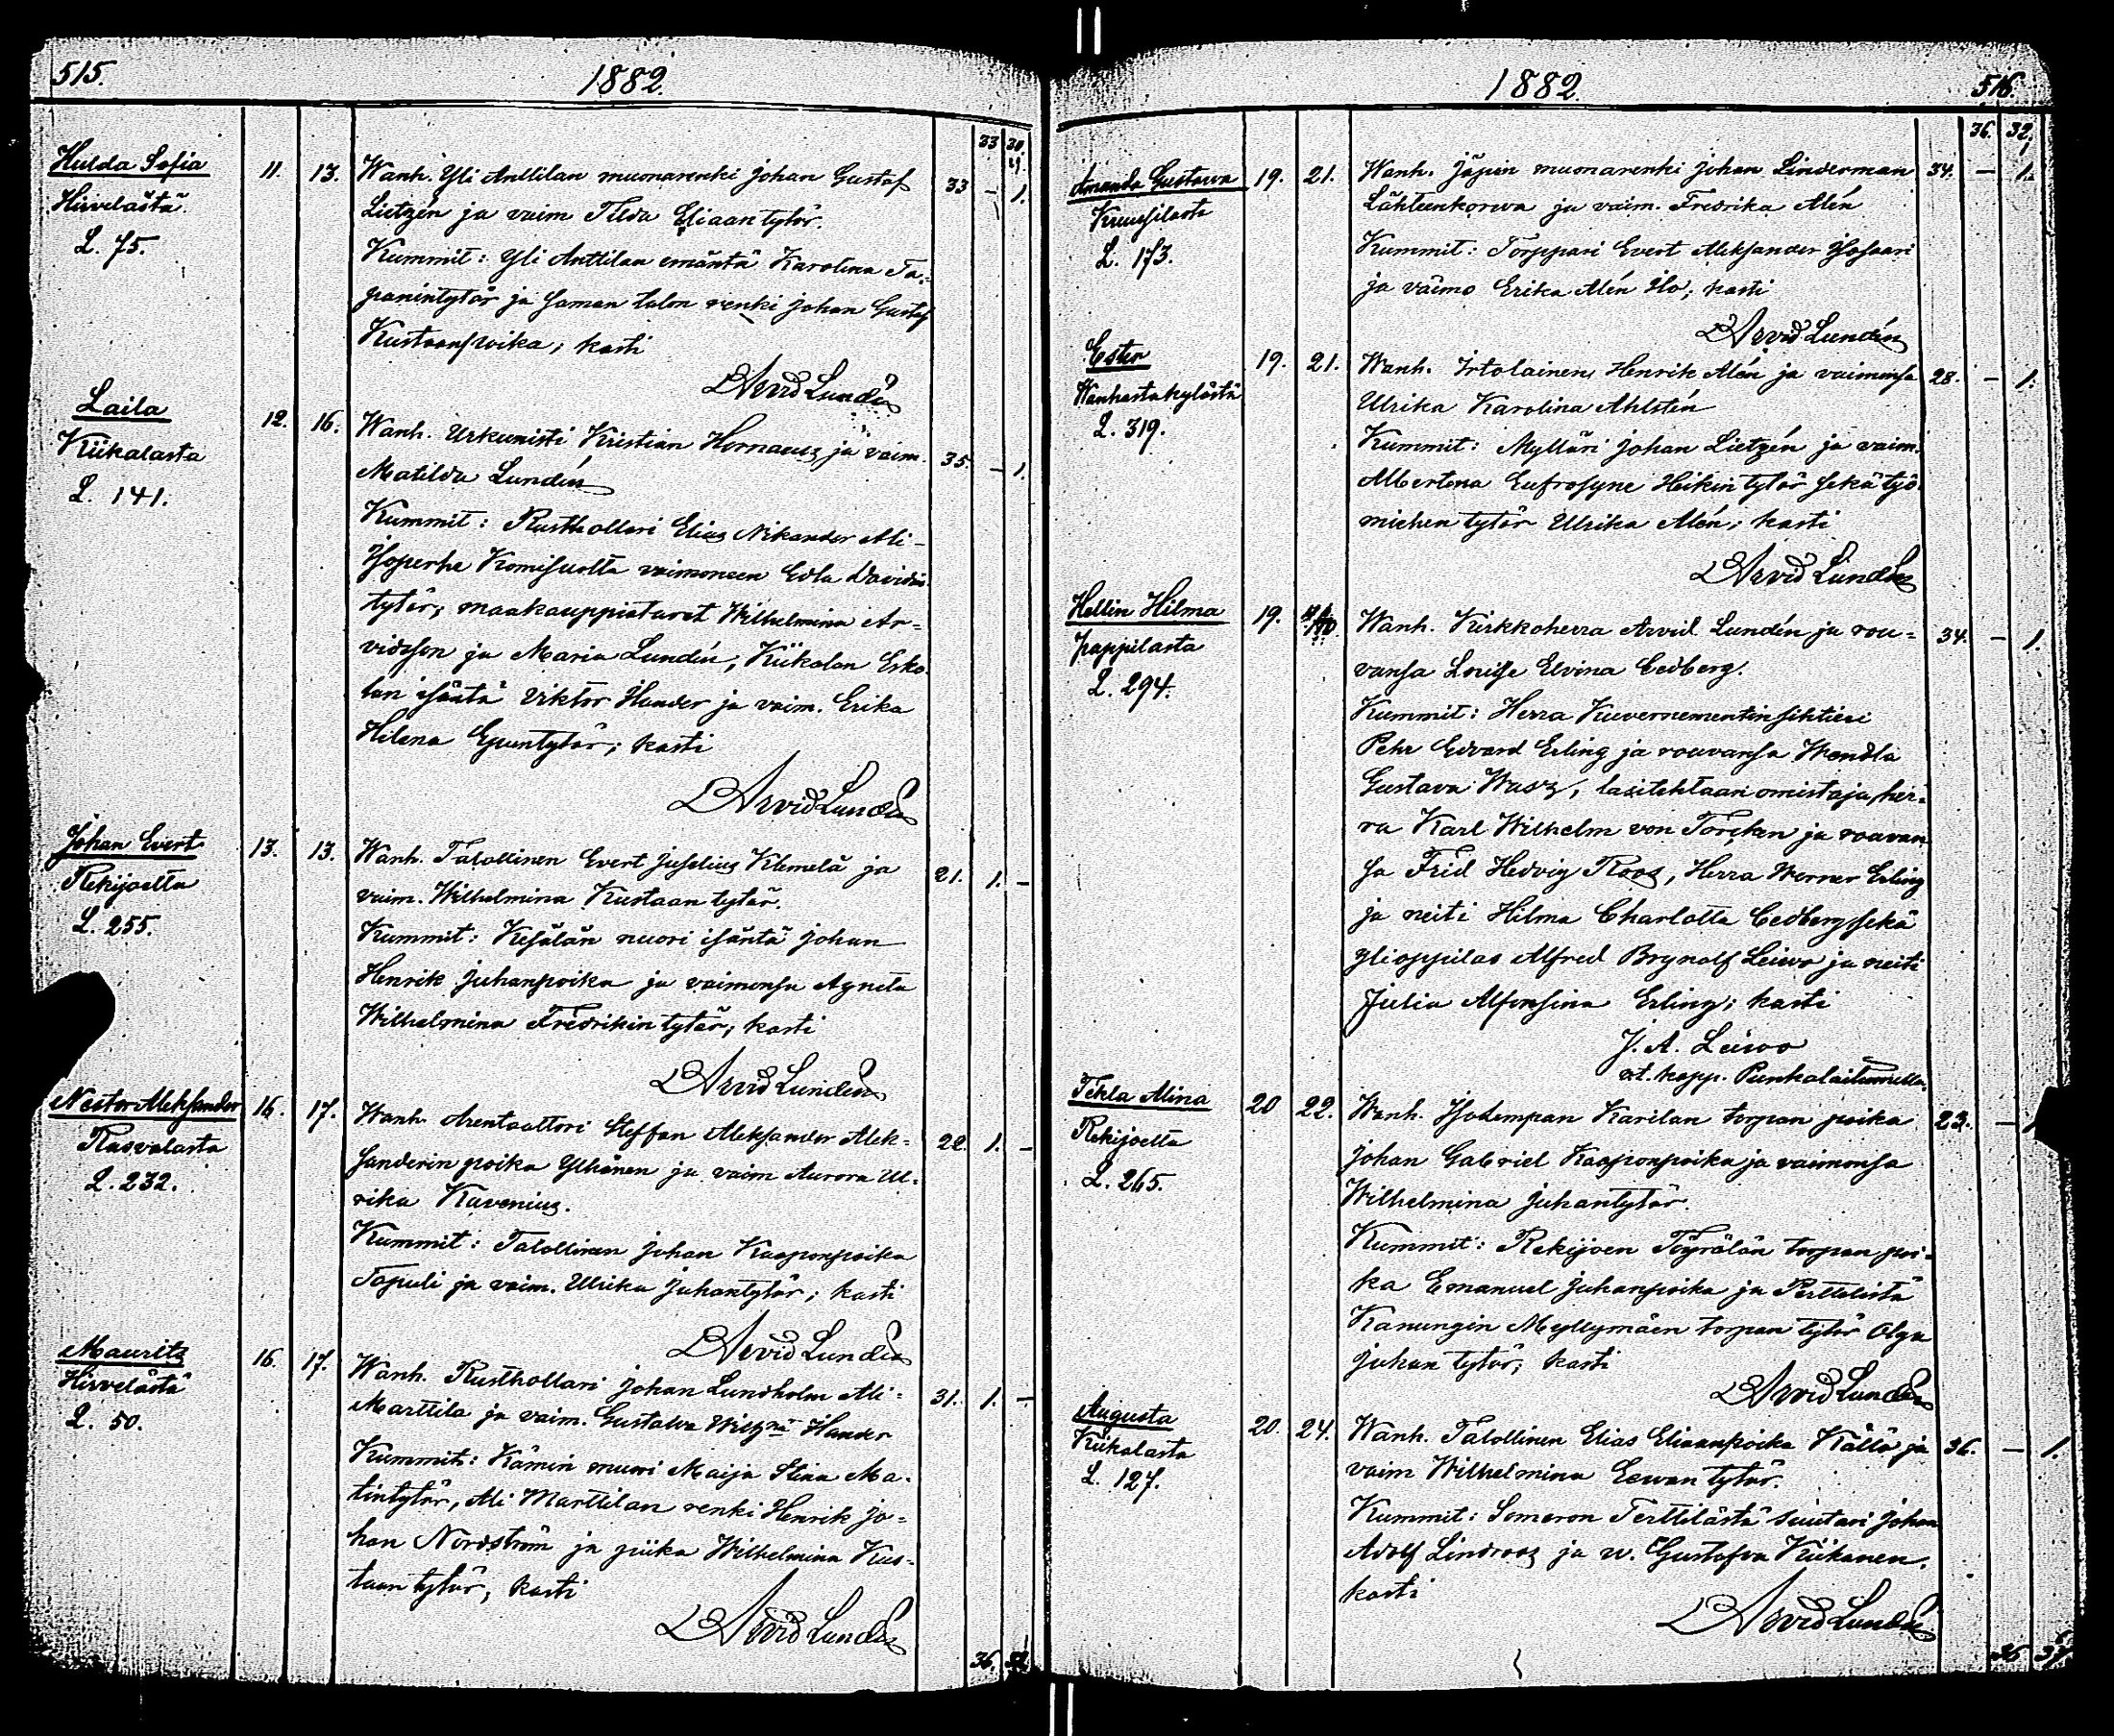 515.
1882.
33 30.
Hulda Sofia 11. 13. Wanh. Yli Anttilan muonarenki Johan Gustaf 33 – 1.
Hirvelästä. Lietzén ja vaim Tilda Eliaan tytör.
L. 75. Kummit: Yli Anttilan emäntä Karolina Ta=
panintytär ja saman talon renki Johan Gustaf
Kustaanpoika; kasti
Arvid Lundén
Laila 12. 16. Wanh. Urkunisti Kristian Hornaeus ja vaim. 35. – 1.
Kiikalasta Matilda Lundén
L. 141. Kummit: Rusthollari Elias Nikander Ali-
Isoperhe Komisuolta vaimoneen Edla Davidin
tytär; maakauppiataret Wilhelmina Ar=
vidsson ja Maria Lundén; Kiikalan Esko
lan isäntä Viktor Hander ja vaim. Erika
Hilena tytär; kasti
Arvid Lundén
Johan Evert 13. 13. Wanh. Talollinen Evert Juselius Klemelä ja 21. 1. –
Rekijoelta vaim. Wilhelmina Kustaan tytär.
L. 255. Kummit: Kesälän nuori isäntä Johan
Henrik Juhanpoika ja vaimonsa Agneta
Wilhelmina Fredrikin tytär; kasti
Arvid Lundén
Nestor Aleksander 16. 17. Wanh. Arentaattori Steffan Aleksander Alek= 22. 1. –
Rasvalasta sanderin poika Ylhänen ja vaim Aurora Ul-
L. 232. rika Kavenius.
Kummit: Talollinen Johan Kaaponpoika
Tapuli ja vaim. Ulrika Juhantytär; kasti
Arvid Lundén
Mauritz 16. 17. Wanh. Rusthollari Johan Lundholm Ali= 31. 1. –
Hirvelästä Marttila ja vaim. Gustava Hander
L. 50. Kummit: Kämin muori Maija Stina Ma-
tintytär, Ali Marttilan renki Henrik Jo=
han Nordström ja piika Wilhelmina Kus-
taan tytär, kasti
Arvid Lundén
36.
1882.
516.
36. 32,
Amanda Gustava 19. 21. Wanh. Jäpin muonarenki Johan Linderman 34. – 1.
Kruusilasta Lähteenkorva ja vaim. Fredrika Alén
L. 173. Kummit: Torppari Evert Aleksander Isosaari
ja vaimo Erika Alén Ilo; kasti
Arvid Lundén
Ester 19. 21. Wanh. Irtolainen Henrik Alén ja vaimonsa 28. – 1.
Wanhastakylästä Ulrika Karolina Ahlstén
L. 319. Kummit: Mylläri Johan Lietzén ja vaim.
Albertina Eufrosyne Heikin tytär sekä työ
miehen tytär Ulrika Alén; kasti
Arvid Lundén
Hellin Hilma 19. Wanh. Kirkkoherra Arvid Lundén ja rou= 34. – 1.
Pappilasta vansa Louise Elvina Cedberg.
L. 294. Kummit: Herra Kuvernementinsihtieri
Pehr Edvard Erling ja rouvansa Wendla
Gustava Wasz; lasitehtaan omistaja, her-
ra Karl Wilhelm von Torcken ja rouvan
sa Frid Hedvig Roos, Herra Werner Erling
ja neiti Hilma Charlotta Cedberg sekä
ylioppilas Alfred Brynolf Leivo ja neiti
Julia Alfonsina Erling; kasti
J. A. Leivo
vt. kapp. Punkalaitumella.
Tekla Alina 20 22. Wanh. Karilan torpan poika 23. –
Rekijoelta Johan Gabriel Kaaponpoika ja vaimonsa
L. 265. Wilhelmina Juhantytär.
Kummit: Rekijoen Töyrälän torpan poi-
ka Emanuel Juhanpoika ja Perttelistä
Kanungin Myllymäen torpan tytär Olga
Juhan tytär; kasti
Arvid Lundén
Augusta 20. 24. Wanh. Talollinen Elias Eliaanpoika Källä ja 36. – 1.
Kiikalasta vaim Wilhelmina Eewan tytär.
L. 127. Kummit: Someron Terttilästä suutari Johan
Adolf Lindroos ja w. Gustafva Kiikanen.
kasti
Arvid Lundén
36 37